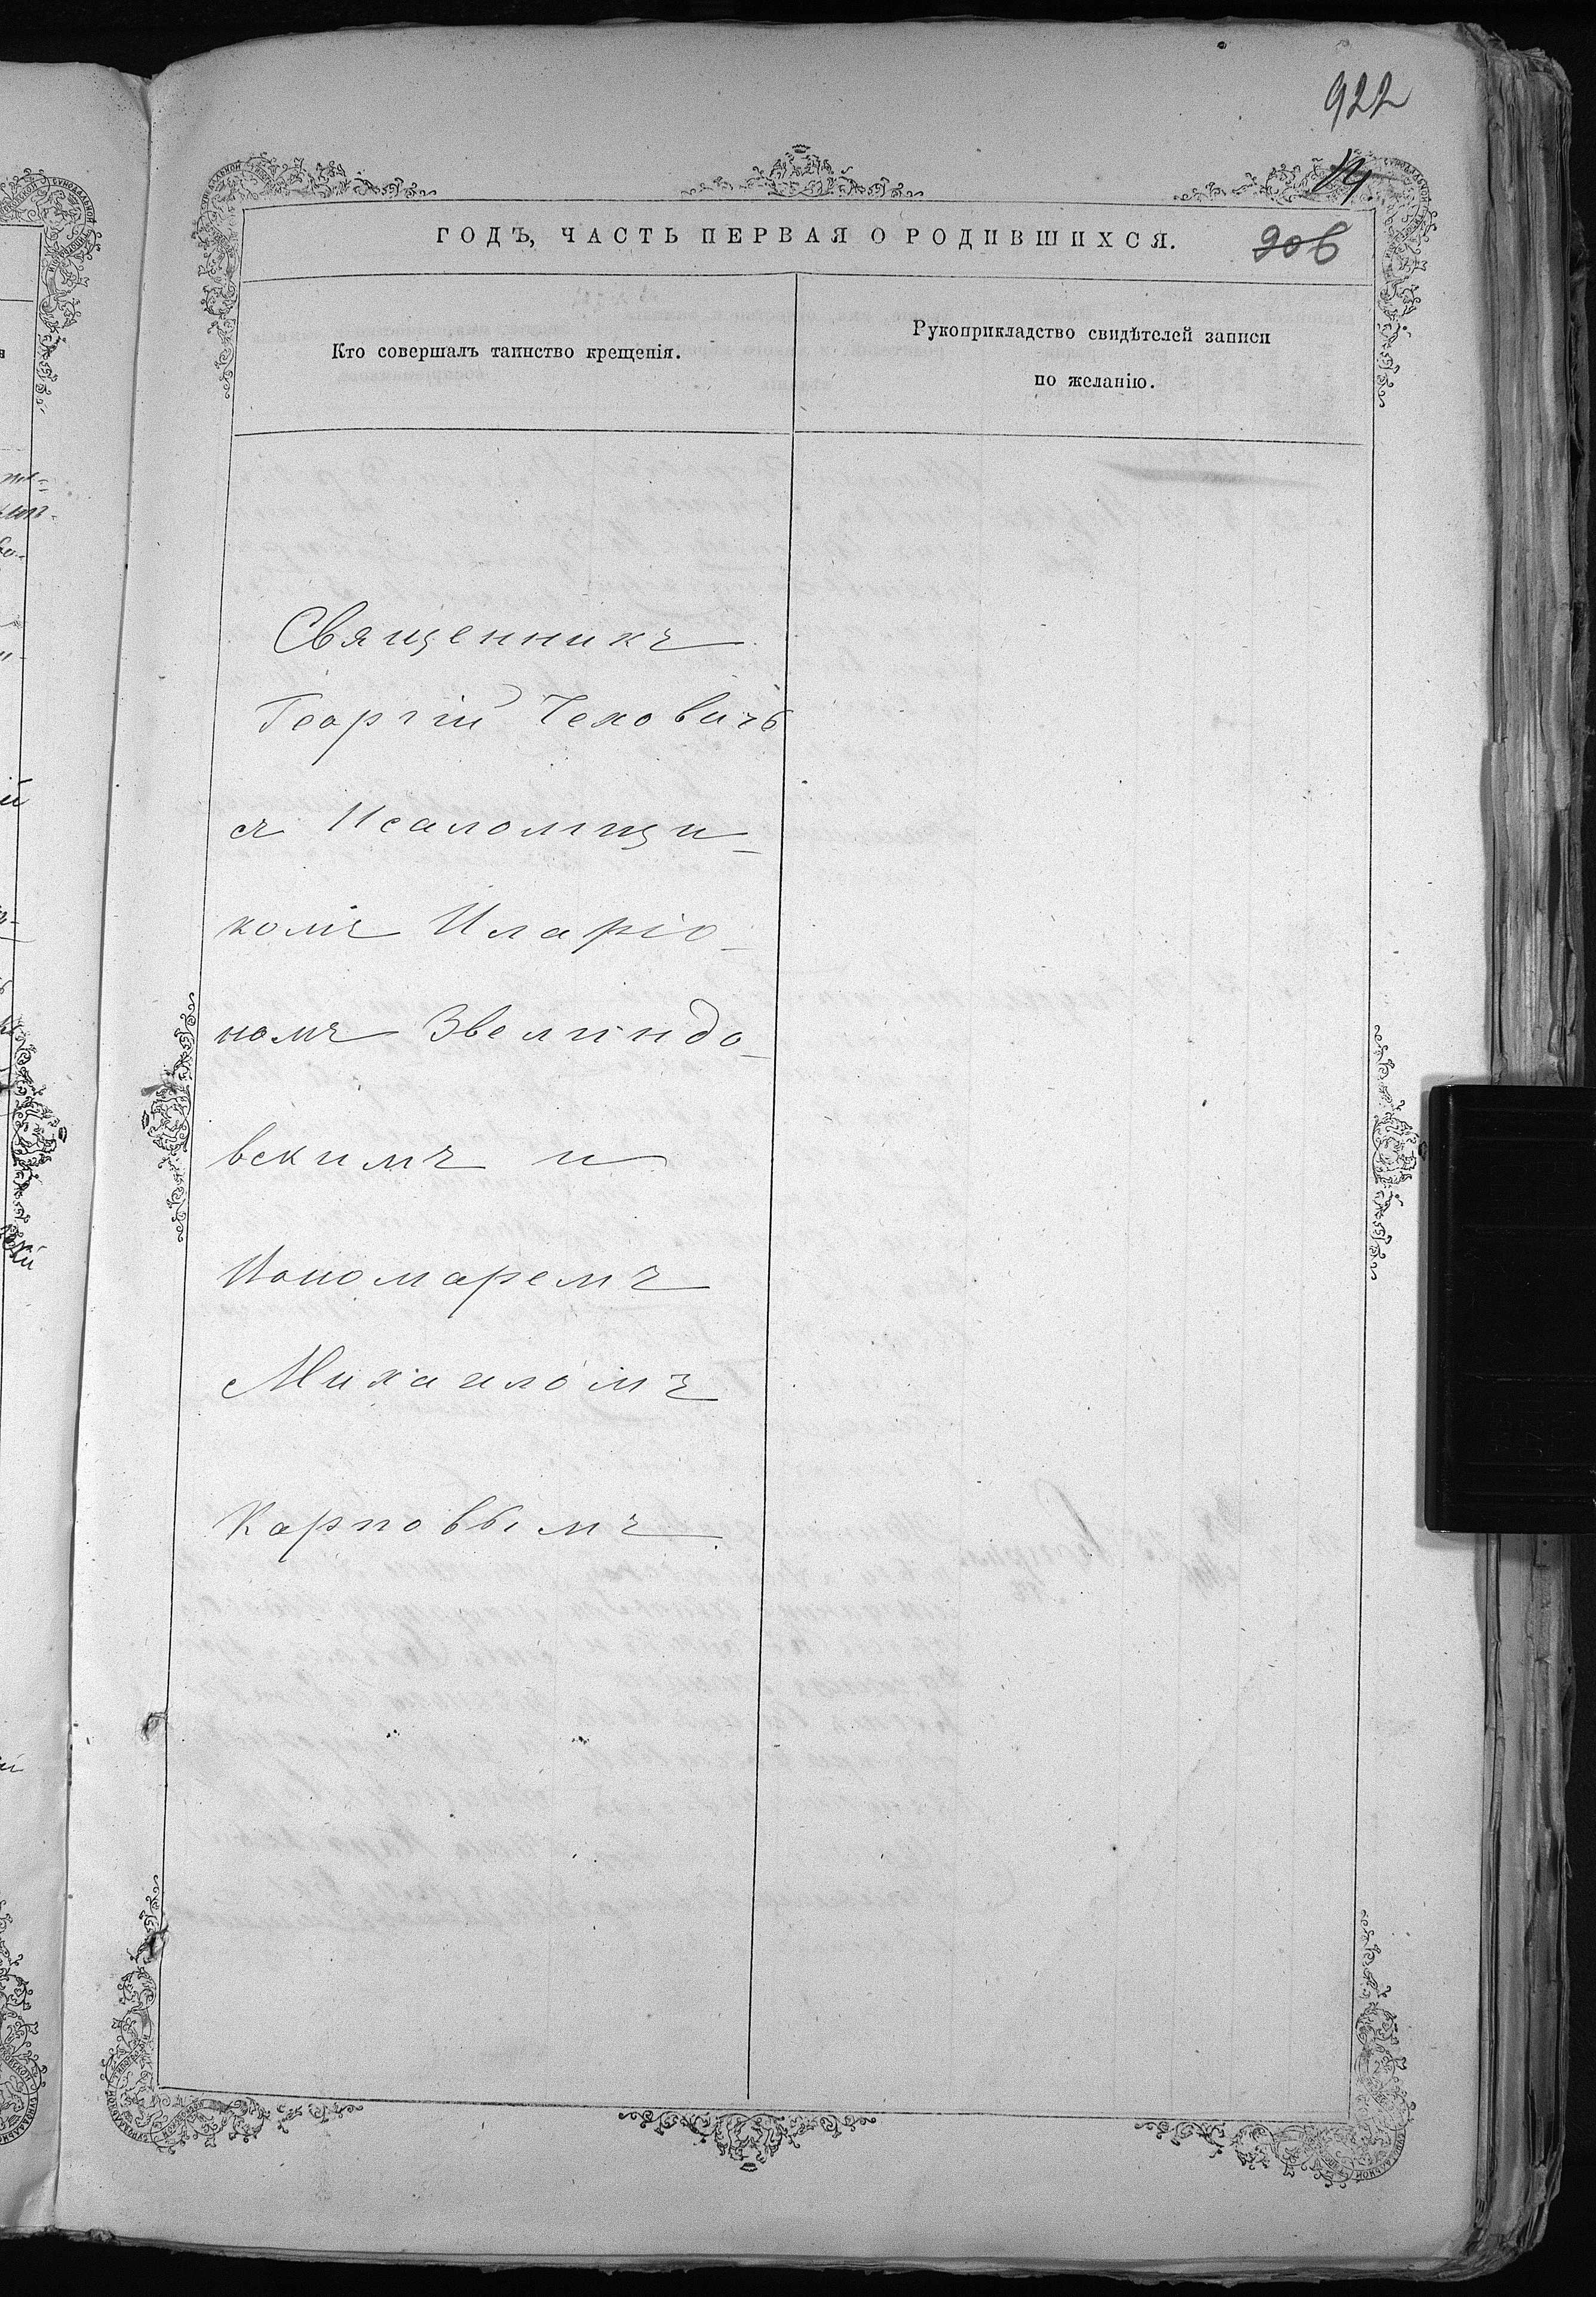 922
14
ГОДЪ, ЧАСТЬ ПЕРВАЯ О РОДИВШИХСЯ.
906
Кто совершалъ таинство крещенія.
Рукоприкладство свидѣтелей записи
по желанію.
Священникъ
Георгій Чеховичъ
съ Псаломщи-
комъ Иларіо-
номъ Звелиндо-
вскимъ и
Пономаремъ
Михаиломъ
Карповымъ